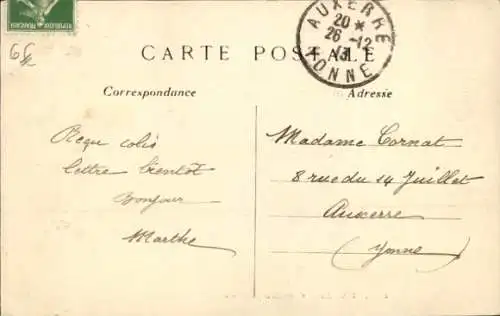 REPUBLIQUE FRANÇAISE
AUXERRE
20 *
26 -12
13
YONNE
CARTE POSTALE
Correspondance
Adresse
Reçu colis
lettre bientôt
Bonjour
Marthe
Madame Cornat
8 rue du 14 Juillet
Auxerre
(Yonne)